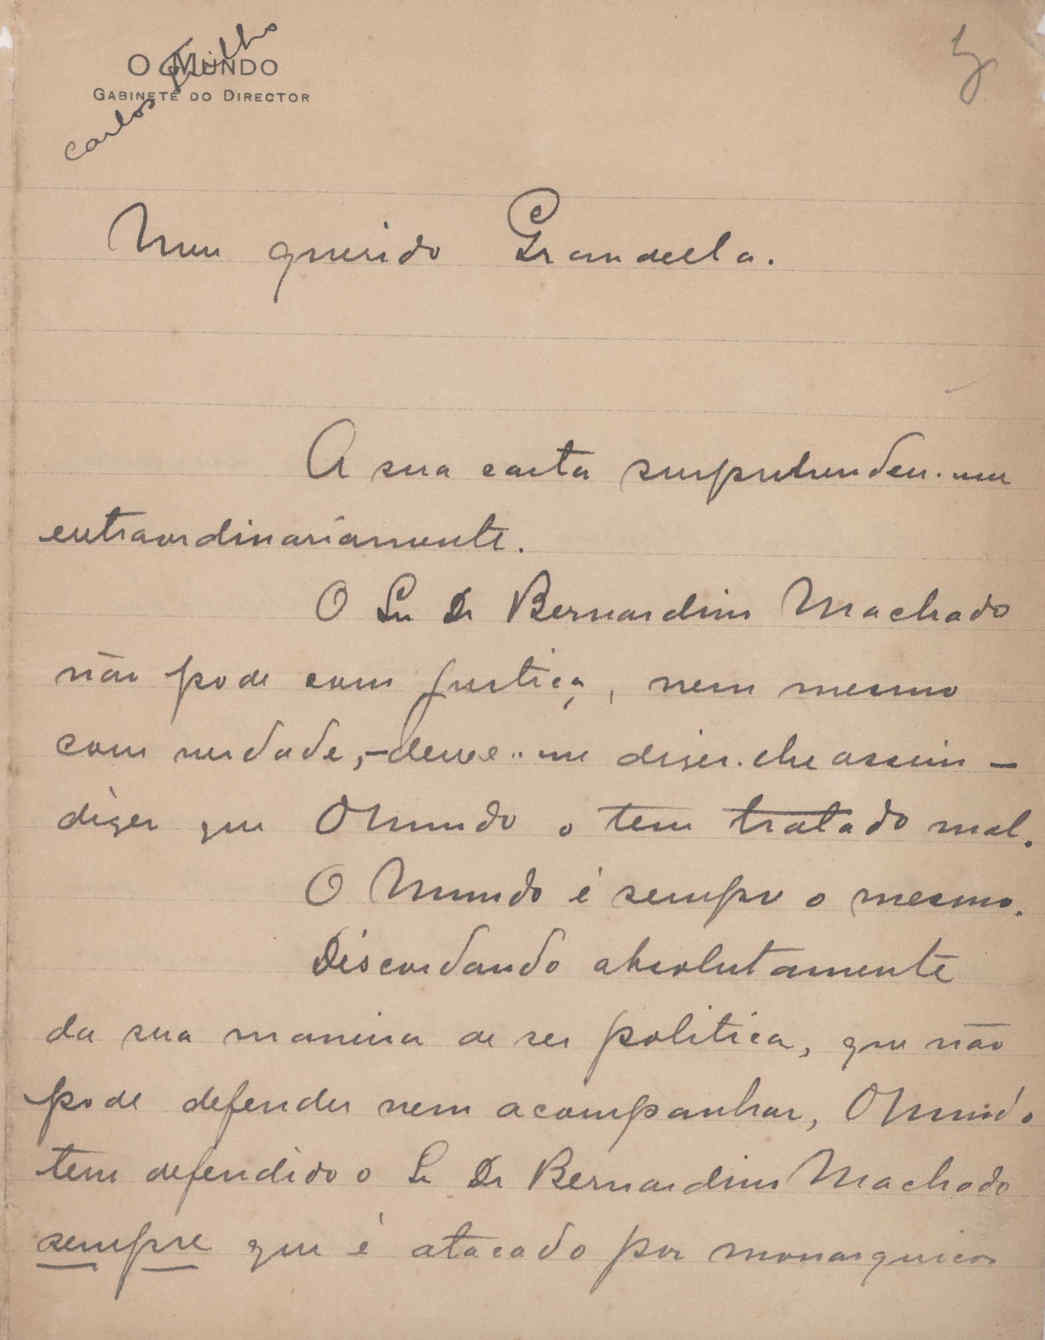 O MUNDO
GABINETE DO DIRECTOR
Carlos
Meu querido Grandella.
A sua carta surprehendeu-me
extraordinariamente.
O Sr Dr Bernardino Machado
não pode com justiça, nem mesmo
com verdade, - deixe-me dizer-lhe assim -
dizer que O Mundo o tem tratado mal.
O Mundo é sempre o mesmo.
Discordando absolutamente
da sua maneira de ser politica, que não
pode defender nem acompanhar, O Mundo
tem defendido o Sr Dr Bernardino Machado
sempre que é atacado por monarquicos